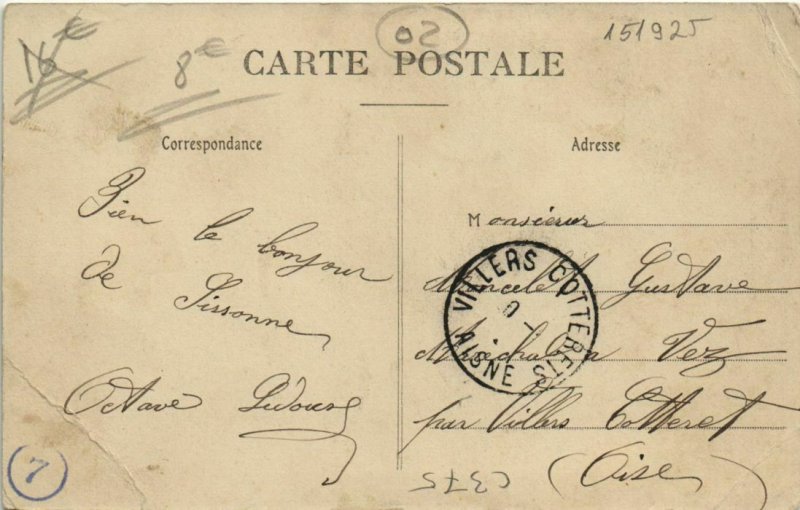 16 €
8 €
02
151925
CARTE POSTALE
Correspondance
Adresse
Bien le bonjour
de Sissonne
Octave
Monsieur
Marcelet Gustave
Maréchal a Vez
par Villers Cotteret
(Oise)
VILLERS COTTERETS
AISNE
C375
7